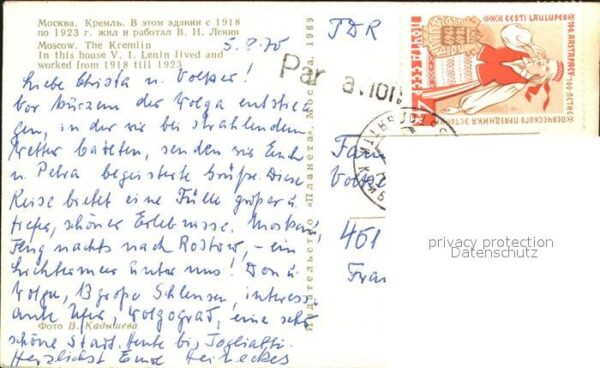 Москва. Кремль. В этом здании с 1918
по 1923 г. жил и работал В. И. Ленин
Moscow. The Kremlin
In this house V. I. Lenin lived and
worked from 1918 till 1923
5.9.70
Liebe Christa u. Volker!
Vor kurzem der Wolga entstie-
gen, in der wir bei strahlendem
Wetter badeten, senden wir Euch
u. Petra begeisterte Grüße. Diese
Reise bietet eine Fülle großer u.
tiefer, schöner Erlebnisse. Moskau,
Flug nachts nach Rostow, - ein
Lichtermeer unter uns! Don u.
Wolga, 13 große Schleusen, interess-
ante Ufer, Wolgograd, eine sehr
schöne Stadt. Heute bis Togliatti.
Herzlichst Eure
Фото В. Кадышева
Издательство «Планета». Москва. 1969
TDR
Par avion
EESTI LAULUPEO
100. AASTAPÄEV · 100-ЛЕТИЕ
ПЕВЧЕСКОГО ПРАЗДНИКА ЭСТОНИИ
ПОЧТА СССР
1869
1969
Fam
Volke
privacy protection
Datenschutz